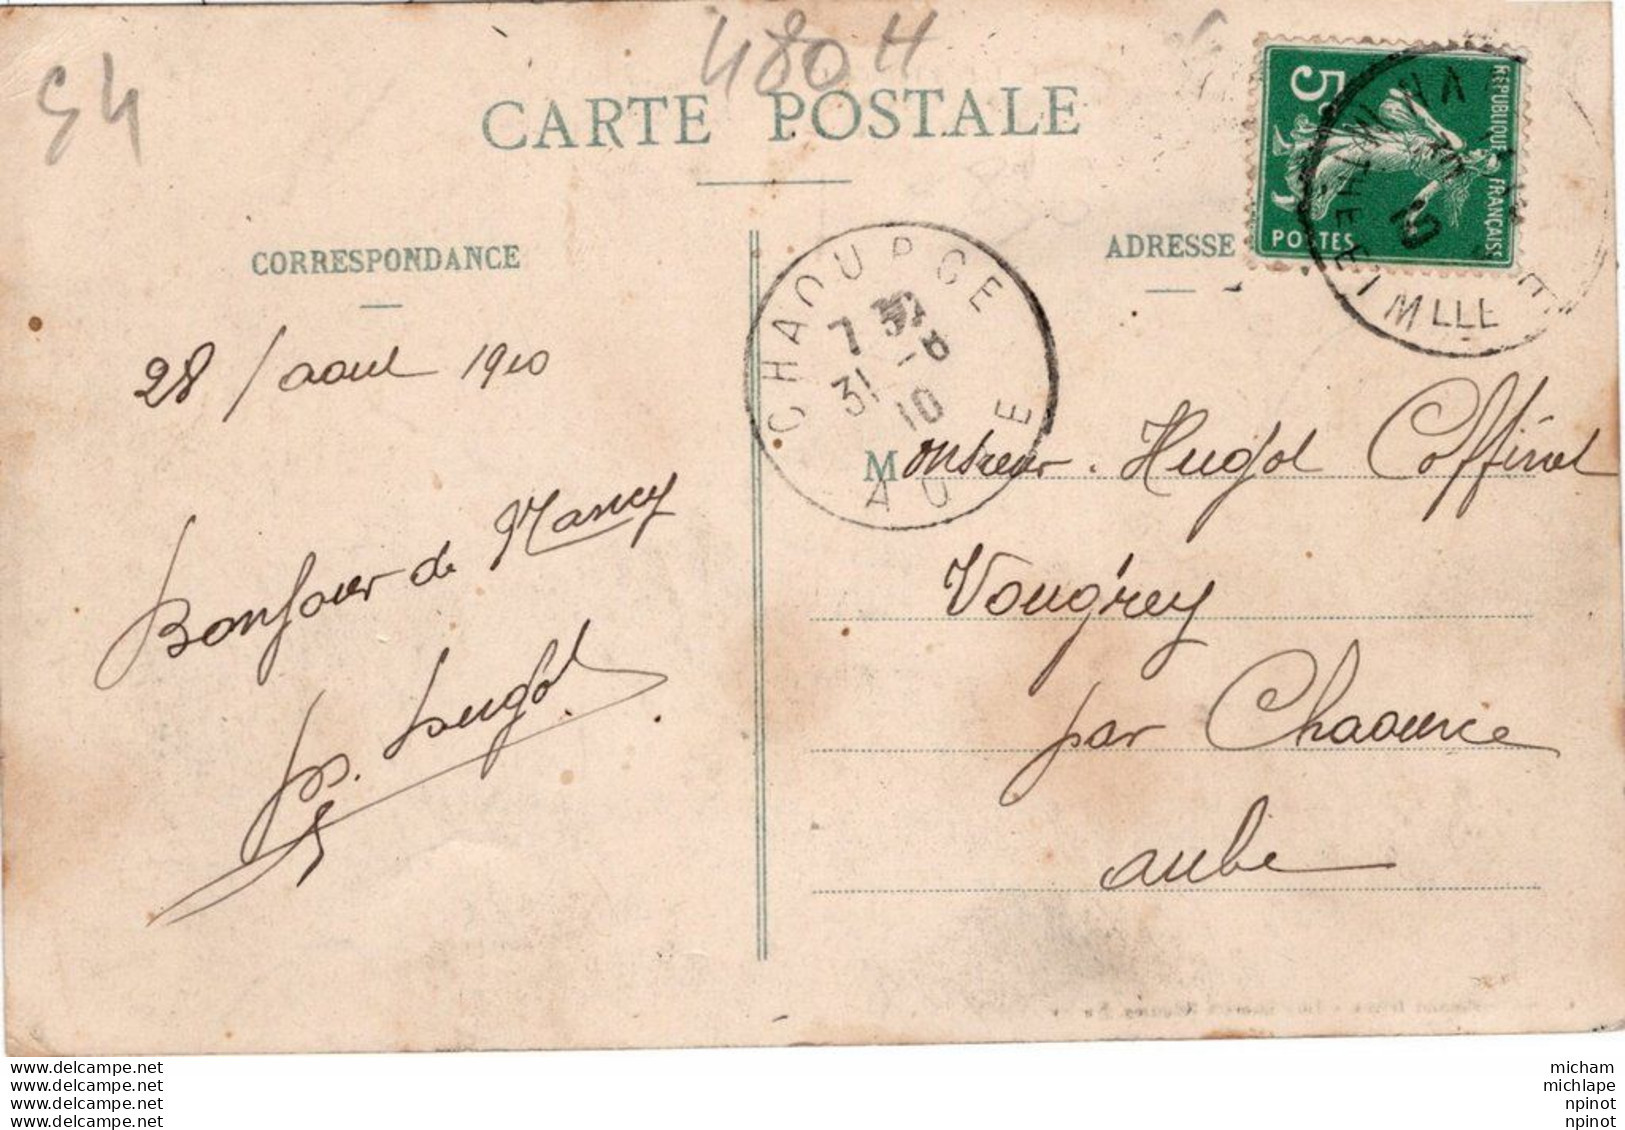 54
480H
CARTE POSTALE
CORRESPONDANCE
ADRESSE
5c
REPUBLIQUE FRANÇAISE
POSTES
10
MLLE
CHAOURCE
7 30
31 - 8
10
AUBE
28 / aout 1910
Bonjour de Nancy
Monsieur. Hugot Coffinet
Vougrey
par Chaource
aube
www.delcampe.net
www.delcampe.net
www.delcampe.net
www.delcampe.net
micham
michlape
npinot
npinot